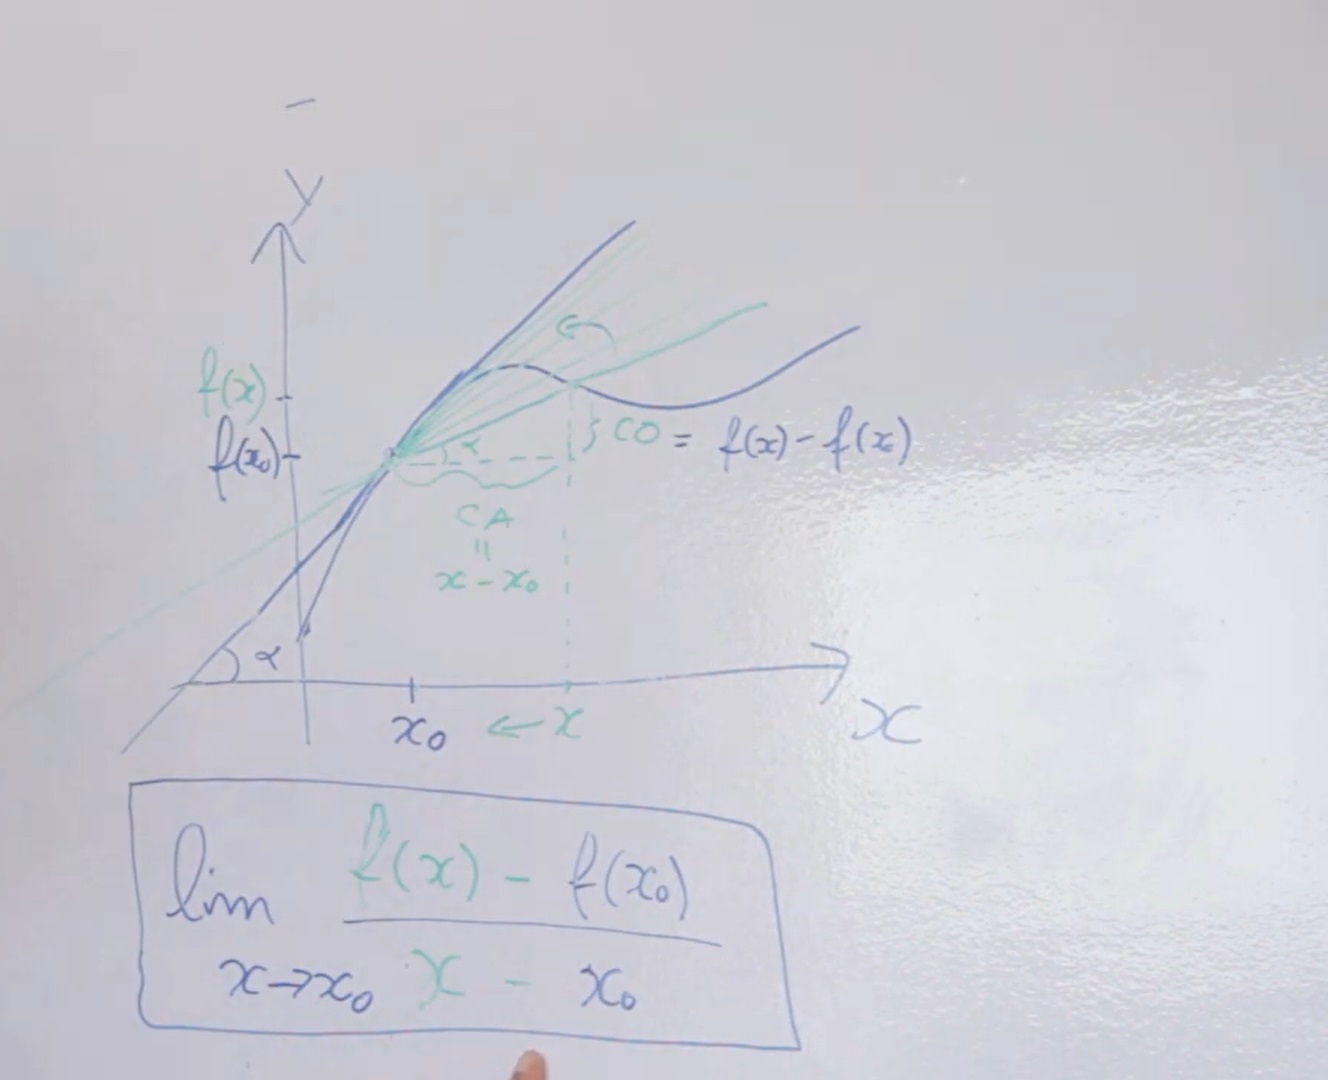 y
f(x)
f(x₀)
α
CO = f(x) - f(x₀)
CA
=
x - x₀
α
x₀ ← x
x
lim f(x) - f(x₀)
x→x₀ x - x₀